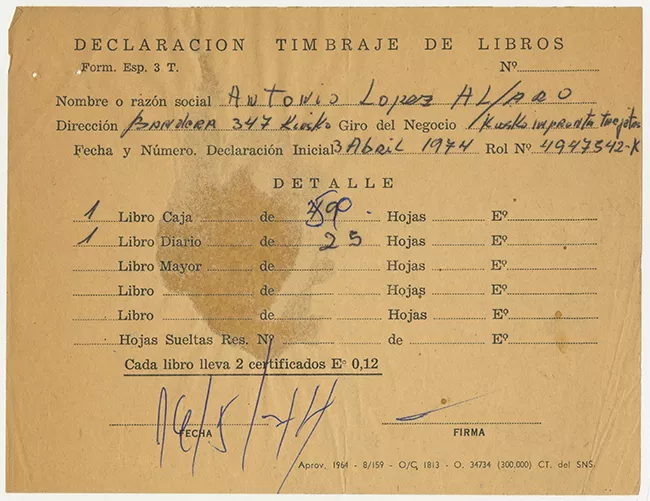 DECLARACION TIMBRAJE DE LIBROS
Form. Esp. 3 T. Nº
Nombre o razón social Antonio Lopez Alfaro
Dirección Bandera 347 Kiosko Giro del Negocio Kiosko imprenta tarjetas
Fecha y Número. Declaración Inicial 3 Abril 1974 Rol Nº 4947542-K
DETALLE
1 Libro Caja de Hojas Eº
1 Libro Diario de 25 Hojas Eº
Libro Mayor de Hojas Eº
Libro de Hojas Eº
Libro de Hojas Eº
Hojas Sueltas Res. Nº de Eº
Cada libro lleva 2 certificados Eº 0,12
FECHA FIRMA
Aprov. 1964 - 8/159 - O/C 1813 - O. 34734 (300.000) CT. del SNS.